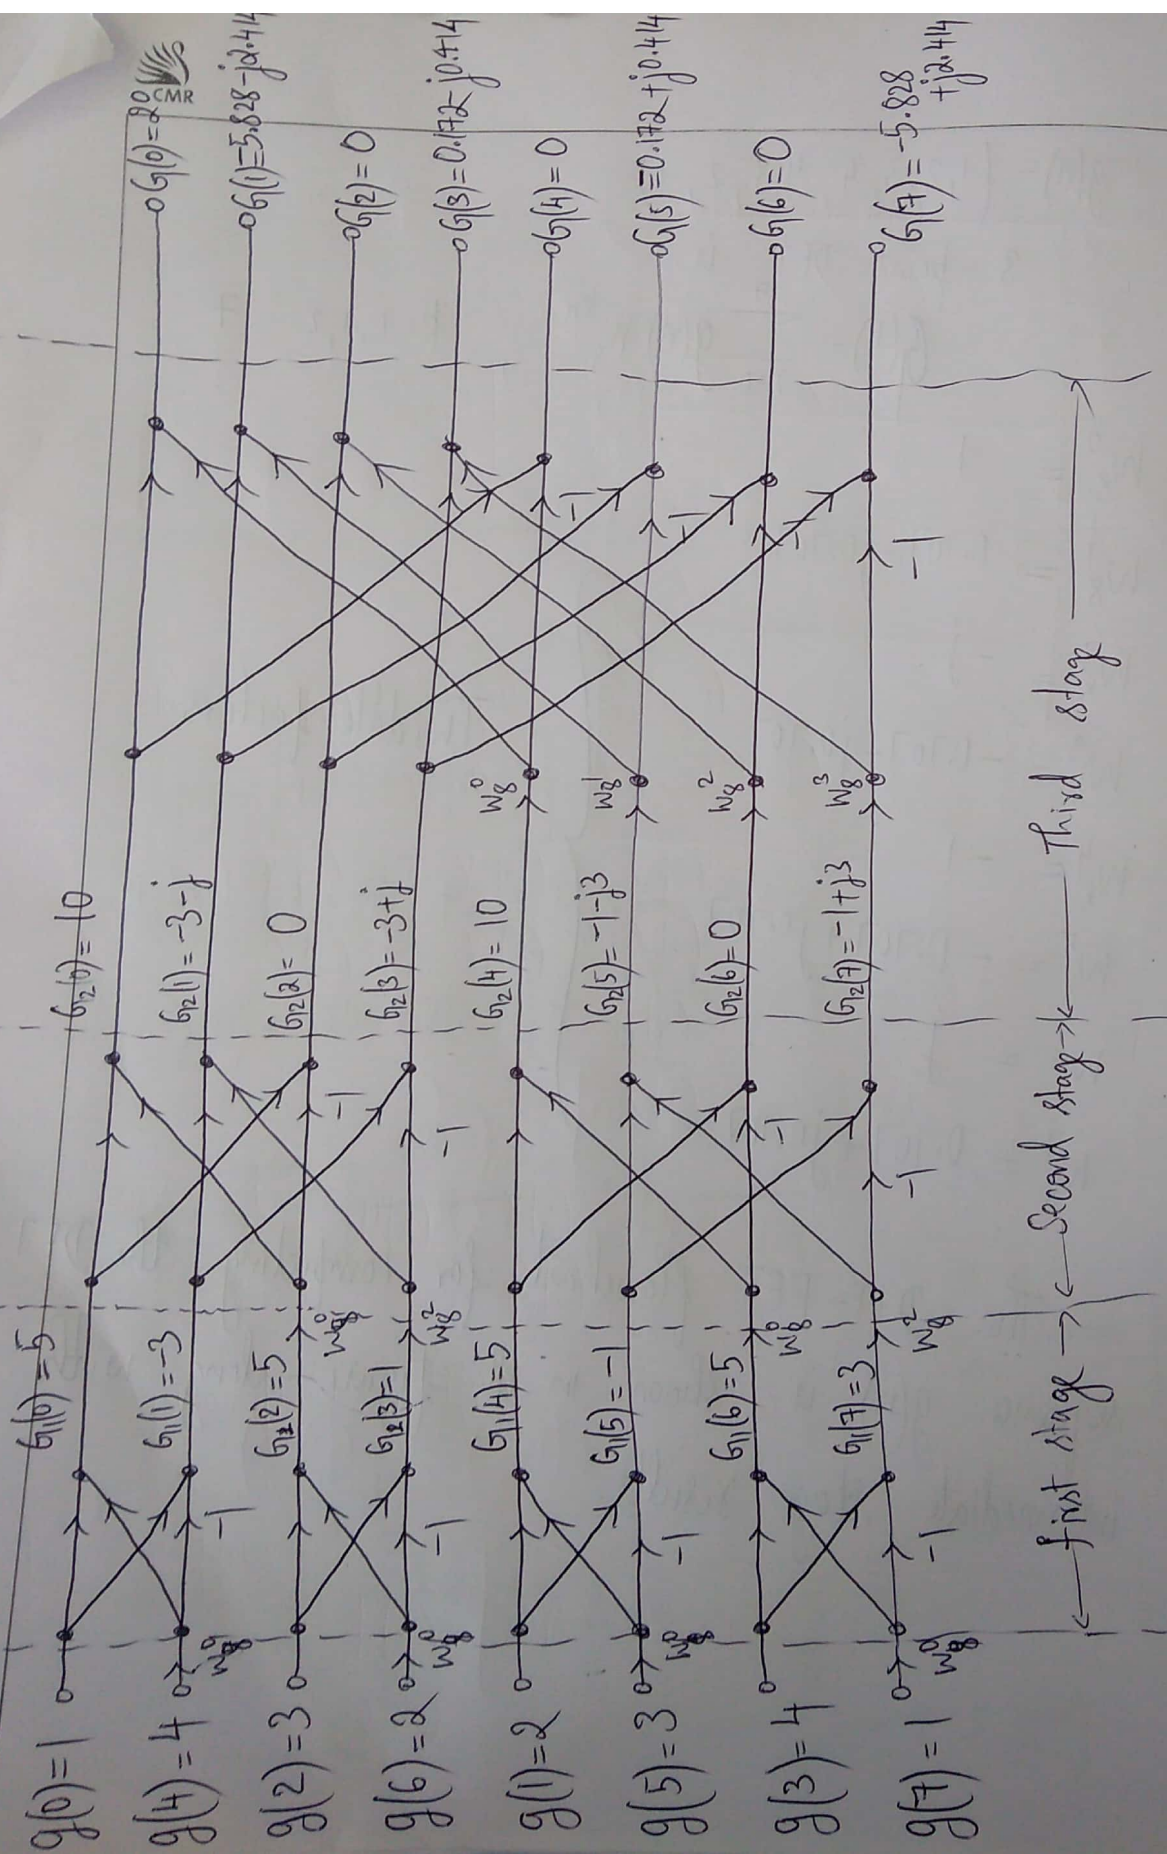 g(0)=1
g(4)=4
g(2)=3
g(6)=2
g(1)=2
g(5)=3
g(3)=4
g(7)=1
W₈⁰
W₈⁰
W₈⁰
W₈⁰
-1
-1
-1
-1
G₁(0)=5
G₁(1)=-3
G₁(2)=5
G₂(3)=1
G₁(4)=5
G₁(5)=-1
G₁(6)=5
G₁(7)=3
W₈⁰
W₈²
W₈⁰
W₈²
-1
-1
-1
-1
G₂(0)=10
G₂(1)=-3-j
G₂(2)=0
G₂(3)=-3+j
G₂(4)=10
G₂(5)=-1-j3
G₂(6)=0
G₂(7)=-1+j3
W₈⁰
W₈¹
W₈²
W₈³
-1
-1
-1
G(0)=20
G(1)=-5.828-j2.414
G(2)=0
G(3)=0.172-j0.414
G(4)=0
G(5)=0.172+j0.414
G(6)=0
G(7)=-5.828
+j2.414
first stage
Second stage
Third stage
CMR